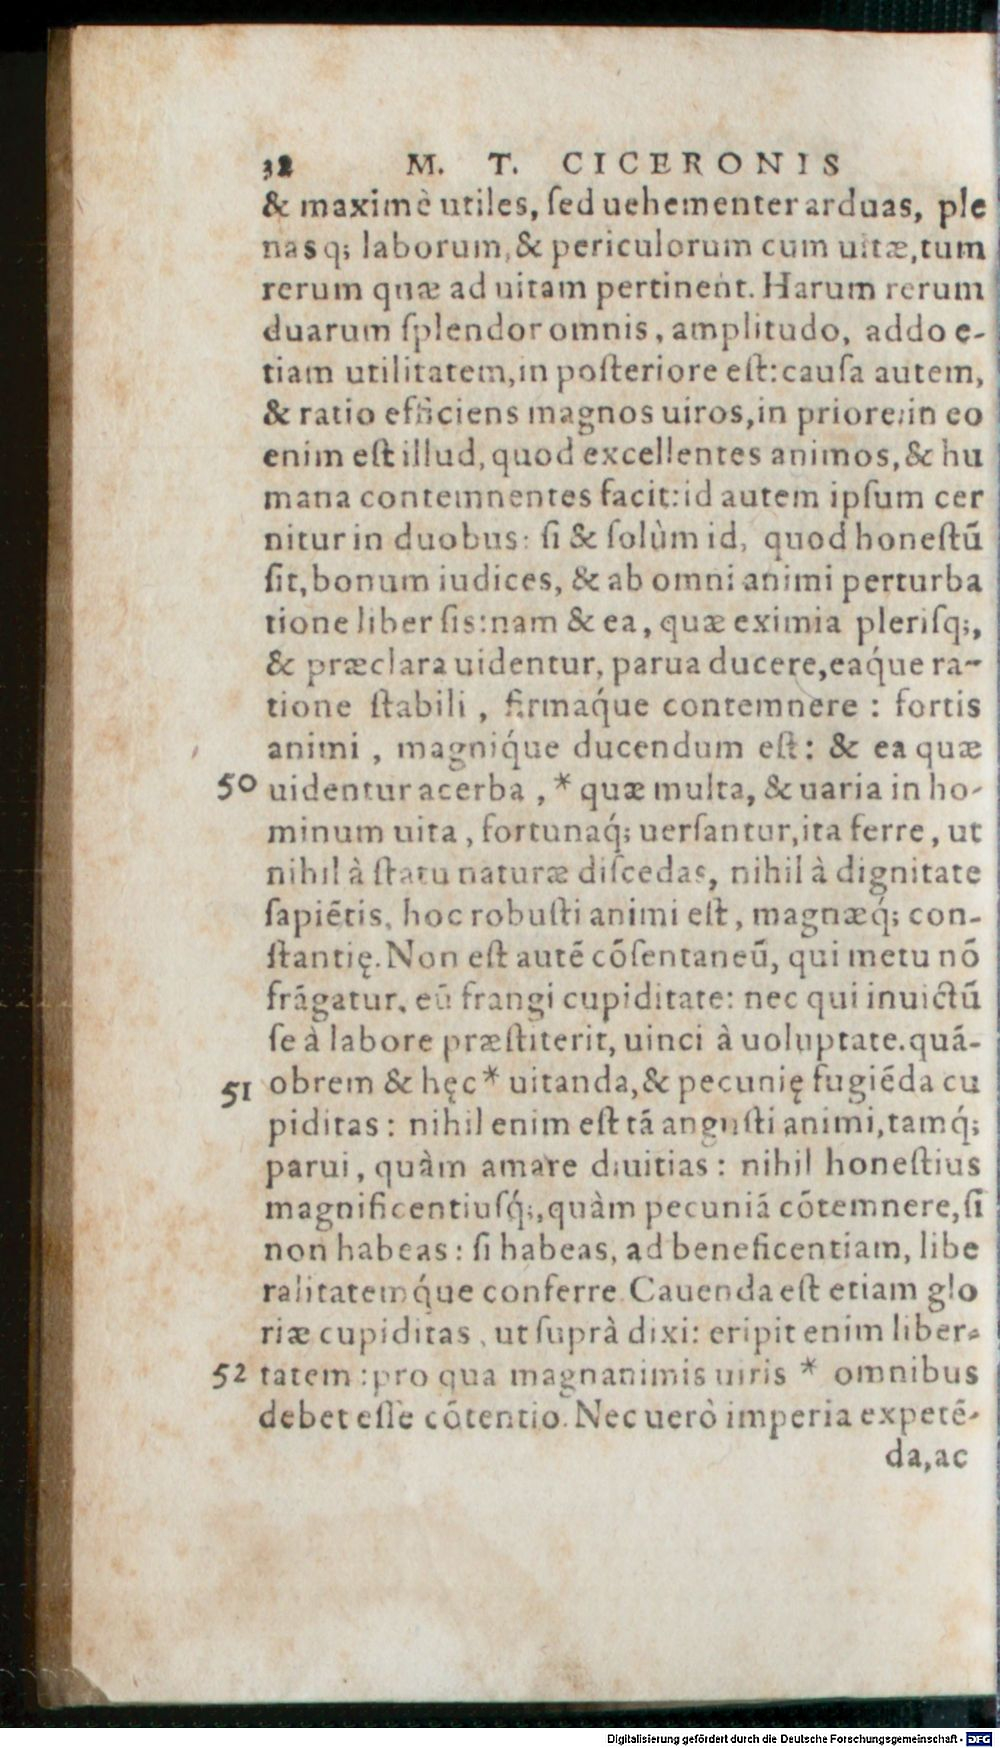 32 M. T. CICERONIS
& maximè utiles, ſed uehementer arduas, ple
nasq; laborum, & periculorum cum uitæ, tum
rerum quæ ad uitam pertinent. Harum rerum
duarum ſplendor omnis, amplitudo, addo e-
tiam utilitatem, in poſteriore eſt: cauſa autem,
& ratio efficiens magnos uiros, in priore: in eo
enim eſt illud, quod excellentes animos, & hu
mana contemnentes facit: id autem ipſum cer
nitur in duobus: ſi & ſolùm id, quod honeſtũ
ſit, bonum iudices, & ab omni animi perturba
tione liber ſis: nam & ea, quæ eximia pleriſq;,
& præclara uidentur, parua ducere, eaq́ue ra-
tione ſtabili, firmaq́ue contemnere : fortis
animi, magniq́ue ducendum eſt: & ea quæ
50 uidentur acerba, * quæ multa, & uaria in ho-
minum uita, fortunaq́; uerſantur, ita ferre, ut
nihil à ſtatu naturæ diſcedas, nihil à dignitate
ſapiẽtis, hoc robuſti animi eſt, magnæq́; con-
ſtantię. Non eſt autẽ cõſentaneũ, qui metu nõ
frãgatur, eũ frangi cupiditate: nec qui inuictũ
ſe à labore præſtiterit, uinci à uoluptate. quã-
51 obrem & hęc * uitanda, & pecunię fugiẽda cu
piditas : nihil enim eſt tã anguſti animi, tamq́;
parui, quàm amare diuitias : nihil honeſtius
magnificentiuſq́;, quàm pecuniã cõtemnere, ſi
non habeas : ſi habeas, ad beneficentiam, libe
ralitatemq́ue conferre. Cauenda eſt etiam glo
riæ cupiditas, ut ſuprà dixi: eripit enim liber-
52 tatem : pro qua magnanimis uiris * omnibus
debet eſſe cõtentio. Nec uerò imperia expetẽ-
da, ac
Digitalisierung gefördert durch die Deutsche Forschungsgemeinschaft - DFG